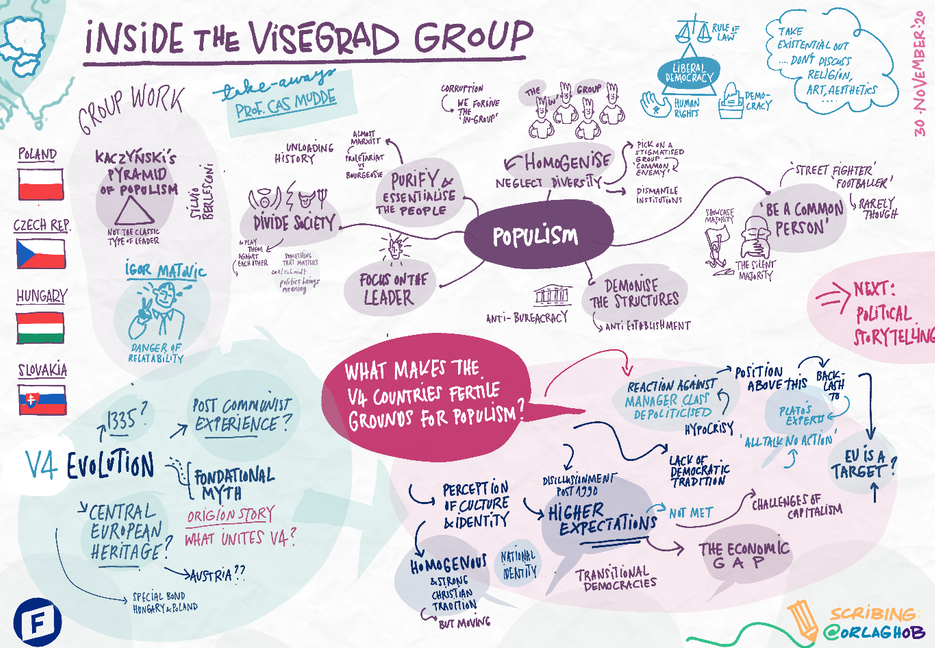 INSIDE THE VISEGRAD GROUP
30·NOVEMBER·'20
take-aways
PROF. CAS MUDDE
GROUP WORK
POLAND
CZECH REP.
HUNGARY
SLOVAKIA
KACZYŃSKI'S
PYRAMID
OF POPULISM
NOT THE CLASSIC
TYPE OF LEADER
SILVIO
BERLESCONI
IGOR MATOVIC
DANGER OF
RELATABILITY
POPULISM
UNLOADING
HISTORY
ALMOST
MARXIST
PROLETARIAT
VS
BOURGEOSIE
PURIFY &
ESSENTIALISE
THE PEOPLE
DIVIDE SOCIETY
PLAY
THEM
AGAINST
EACH OTHER
SOMETHING
THAT MATTERS
carl schmidt
politics brings
meaning
FOCUS ON THE
LEADER
CORRUPTION
WE FORGIVE
THE
'IN-GROUP'
THE 'IN' GROUP
HOMOGENISE
NEGLECT DIVERSITY
PICK ON A
STIGMATISED
GROUP
'COMMON
ENEMY'
DISMANTLE
INSTITUTIONS
RULE OF
LAW
LIBERAL
DEMOCRACY
HUMAN
RIGHTS
DEMO-
CRACY
TAKE
EXISTENTIAL OUT
.... DON'T DISCUSS
RELIGION,
ART, AESTHETICS
....
'STREET FIGHTER'
'FOOTBALLER'
RARELY
THOUGH
'BE A COMMON
PERSON'
SHOWCASE
MAJORITY
THE SILENT
MAJORITY
DEMONISE
THE STRUCTURES
ANTI-BUREACRACY
ANTI ESTABLISHMENT
NEXT:
POLITICAL
STORYTELLING
WHAT MAKES THE
V4 COUNTRIES FERTILE
GROUNDS FOR POPULISM?
1335?
POST COMMUNIST
EXPERIENCE?
V4 EVOLUTION
FONDATIONAL
MYTH
ORIGION STORY
WHAT UNITES V4?
CENTRAL
EUROPEAN
HERITAGE?
AUSTRIA??
SPECIAL BOND
HUNGARY & POLAND
REACTION AGAINST
MANAGER CLASS
DEPOLITICISED
HYPOCRISY
POSITION
ABOVE THIS
BACK-
LASH
TO
PLATO'S
EXPERTS
'ALL TALK NO ACTION'
EU IS A
TARGET?
PERCEPTION
OF CULTURE
& IDENTITY
DISILLUSIONMENT
POST 1990
HIGHER
EXPECTATIONS
NOT MET
LACK OF
DEMOCRATIC
TRADITION
CHALLENGES OF
CAPITALISM
THE ECONOMIC
GAP
HOMOGENOUS
& STRONG
CHRISTIAN
TRADITION
BUT MOVING
NATIONAL
IDENTITY
TRANSITIONAL
DEMOCRACIES
F
SCRIBING
@ORLAGHOB